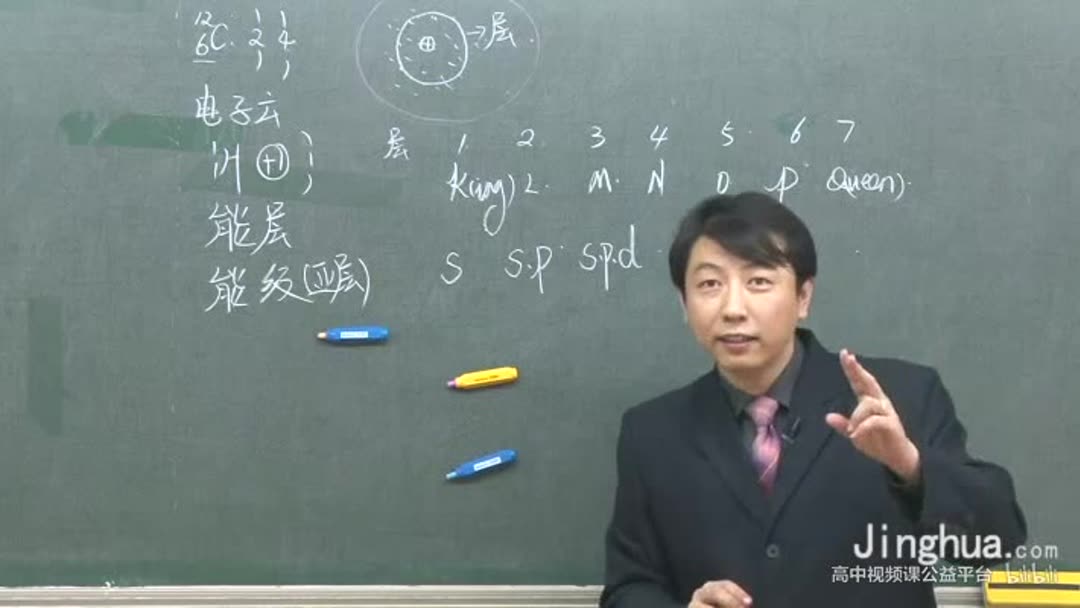 12
6C. 2 4
→层
电子云
1H +1
层 1 2 3 4 5 6 7
K(ing) L. M. N O P Q(ueen).
能层
能级(亚层) s s.p s.p.d
Jinghua.com
高中视频课公益平台 bilibili